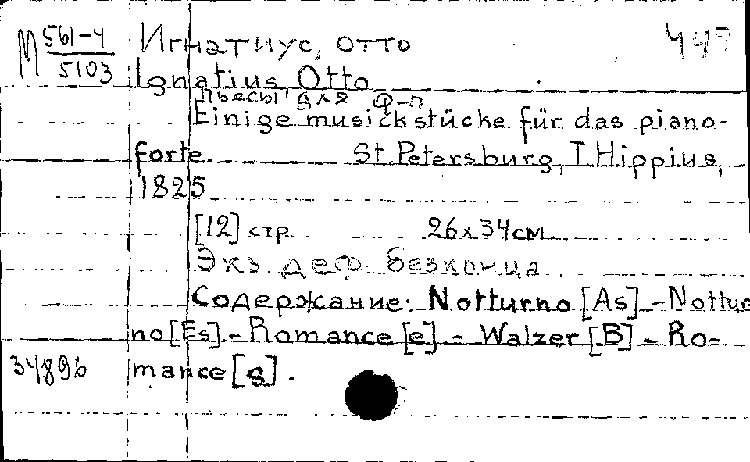 М 561-4
5103
Игнатиус, Отто
447
Ignatius Otto
пьесы для ф-п
Einige musickstücke für das piano-
forte St. Petersburg, T. Hippius,
1825
[12] стр 26х34см
Экз. деф. без конца
Содержание: Notturno [As] - Nottur
no [Es] - Romance [e] - Walzer [B] - Ro-
34896 mance [g].